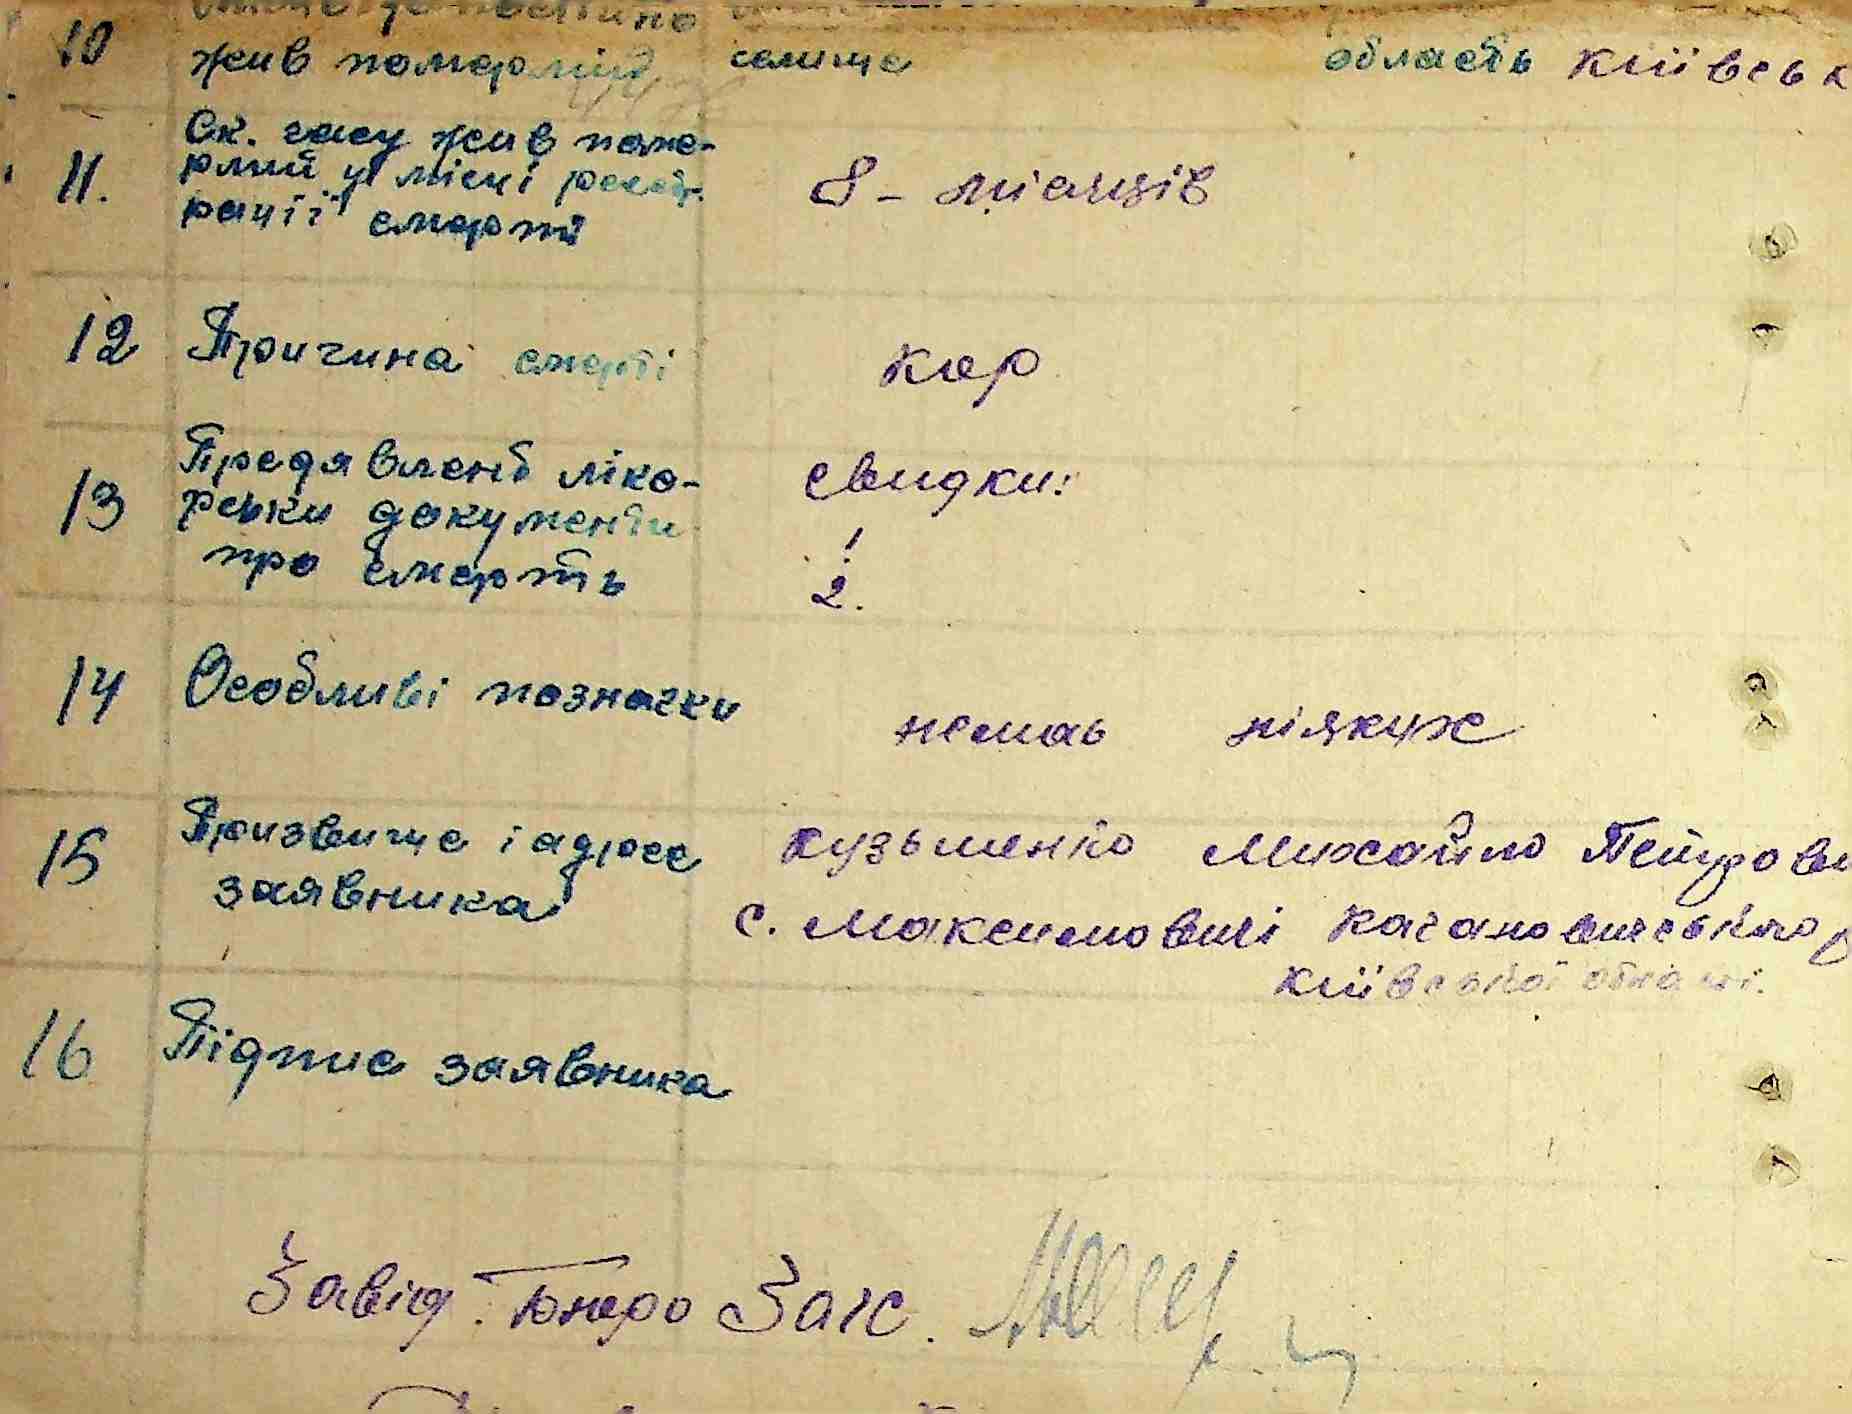 10 жив померлий селище область Київськ
11. Ск. часу жив поме-
рлий у місці реєст-
рації смерті
8 - місяців
12 Причина смерті кор
13 Предявлені ліка-
рськи документи
про смерть
свидки:
1.
2.
14 Особливі позначки
немаь ніяких
15 Призвище і адреса
заявника
Кузьменко Михайло Петрови
с. Максимовичі Кагановичського р
Київської області.
16 Підпис заявника
Завід. Бюро Загс.